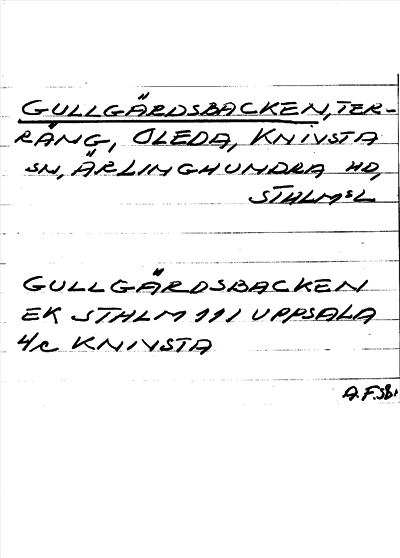 GULLGÄRDSBACKEN, TER-
RÄNG, OLEDA, KNIVSTA
SN, ÄRLINGHUNDRA HD,
STHLMSL
GULLGÄRDSBACKEN
EK STHLM 111 UPPSALA
4/c KNIVSTA
A.F.